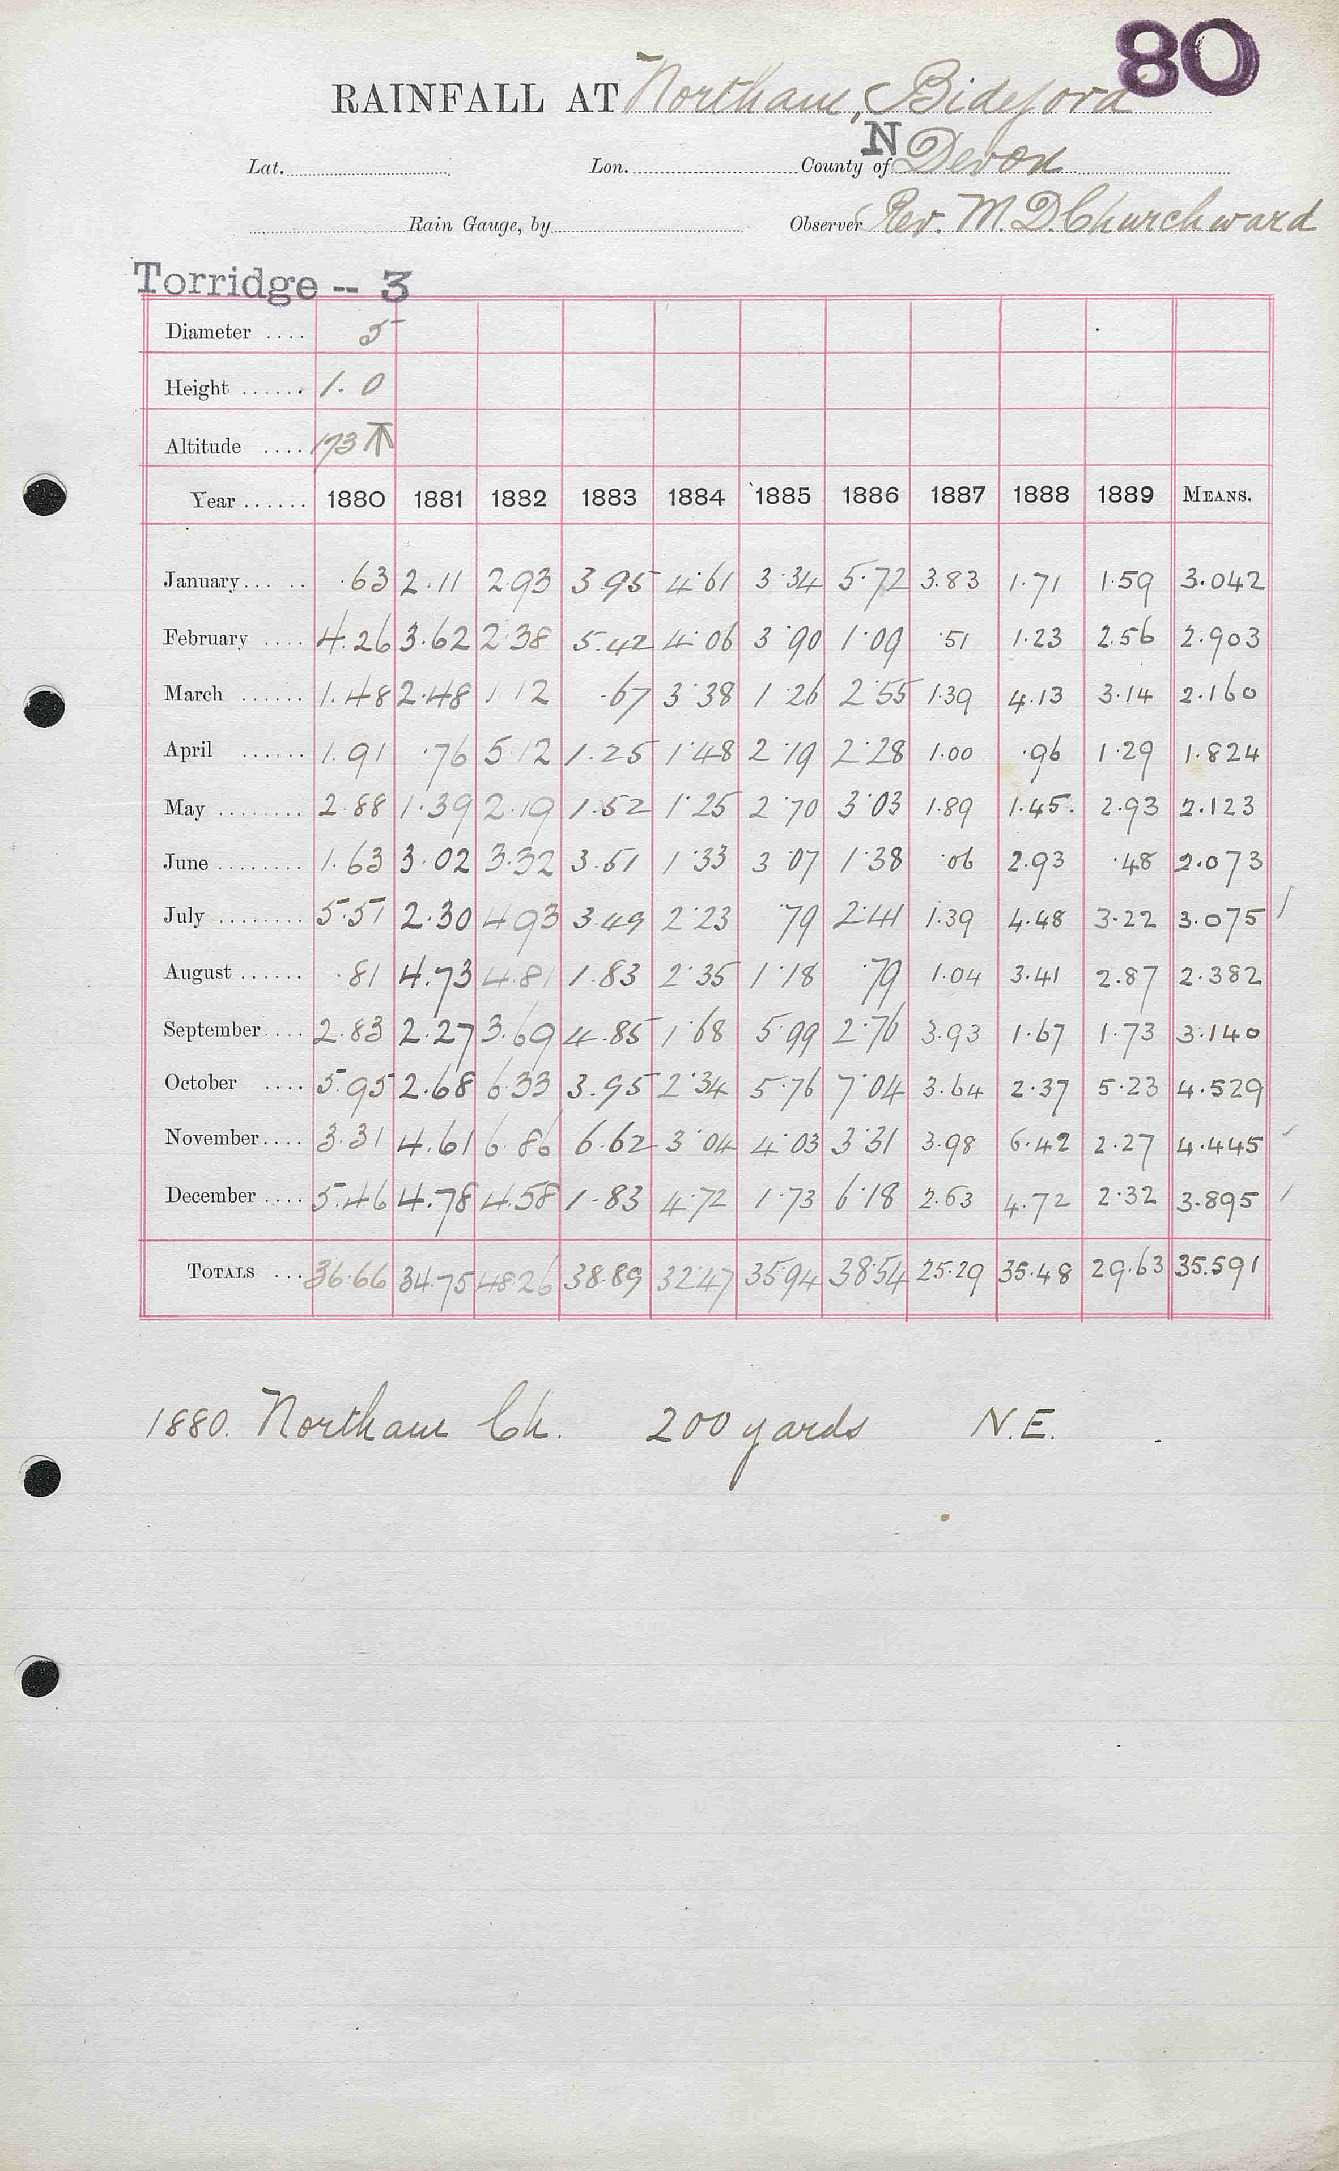 80
RAINFALL AT Northam, Bideford
Lat. Lon. County of N Devon
Rain Gauge, by Observer Rev. M. D. Churchward
Torridge -- 3
Diameter .... 5
Height ...... 1. 0
Altitude .... 173
Year ...... 1880 1881 1882 1883 1884 1885 1886 1887 1888 1889 MEANS.
January ... .. .63 2.11 2.93 3.95 4.61 3.34 5.72 3.83 1.71 1.59 3.042
February .... 4.26 3.62 2.38 5.42 4.06 3.90 1.09 .51 1.23 2.56 2.903
March ...... 1.48 2.48 1.12 .67 3.38 1.26 2.55 1.39 4.13 3.14 2.160
April ...... 1.91 .76 5.12 1.25 1.48 2.19 2.28 1.00 .96 1.29 1.824
May ........ 2.88 1.39 2.19 1.52 1.25 2.70 3.03 1.89 1.45. 2.93 2.123
June ........ 1.63 3.02 3.32 3.51 1.33 3.07 1.38 .06 2.93 .48 2.073
July ........ 5.51 2.30 4.93 3.49 2.23 .79 2.41 1.39 4.48 3.22 3.075
August ...... .81 4.73 4.81 1.83 2.35 1.18 .79 1.04 3.41 2.87 2.382
September .... 2.83 2.27 3.69 4.85 1.68 5.99 2.76 3.93 1.67 1.73 3.140
October .... 5.95 2.68 6.33 3.95 2.34 5.76 7.04 3.64 2.37 5.23 4.529
November .... 3.31 4.61 6.86 6.62 3.04 4.03 3.31 3.98 6.42 2.27 4.445
December .... 5.46 4.78 4.58 1.83 4.72 1.73 6.18 2.63 4.72 2.32 3.895
TOTALS ... 36.66 34.75 48.26 38.89 32.47 35.94 38.54 25.29 35.48 29.63 35.591
1880. Northam Ch. 200 yards N.E.